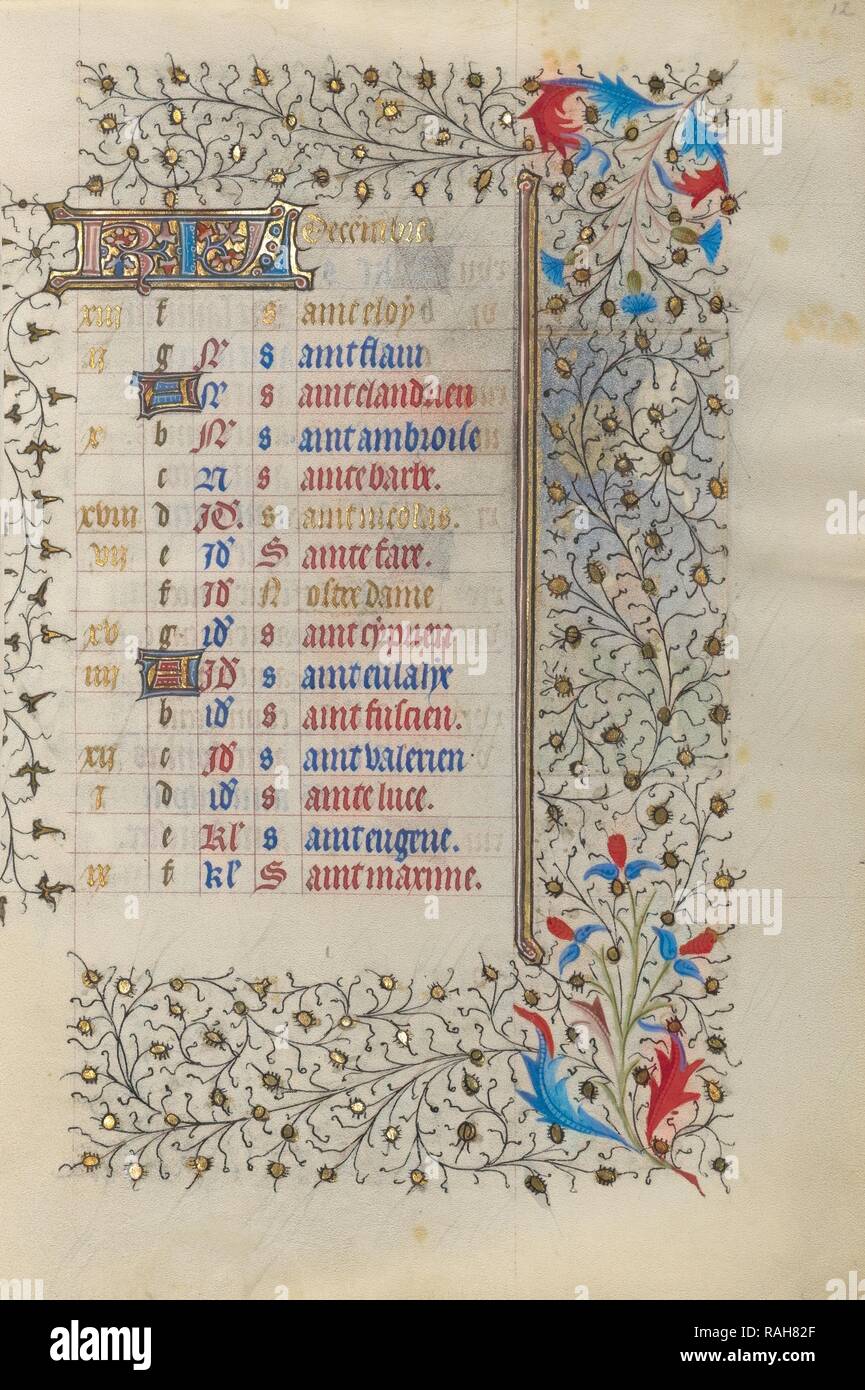 12
KL Decembre.
xiii f Saint eloy
ii g N Saint flani
A N Saint elandrien
x b N Saint ambroise
c N Sainte barbe.
xviii d Id. Saint nicolas.
vii e Id Sainte fare.
f Id Nostre dame
xv g id Saint cyprien
iiii A Id Sainte eulalie
b id Saint fuscien.
xii c Id Saint valerien
i d id Sainte luce.
e kl Saint eugene.
ix f kl Saint maxime.
alamy
Image ID: RAH82F
www.alamy.com